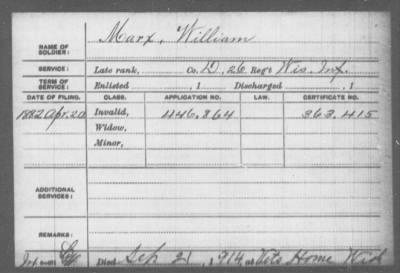 NAME OF SOLDIER: Marx, William
SERVICE: Late rank, Co. D, 26 Reg't Wis. Inf.
TERM OF SERVICE: Enlisted , 1 Discharged , 1
DATE OF FILING. CLASS. APPLICATION NO. LAW. CERTIFICATE NO.
1882 Apr. 20 Invalid, 446.864 363.415
Widow,
Minor,
ADDITIONAL SERVICES:
REMARKS:
Died Sep 21, 1914, at Vets Home